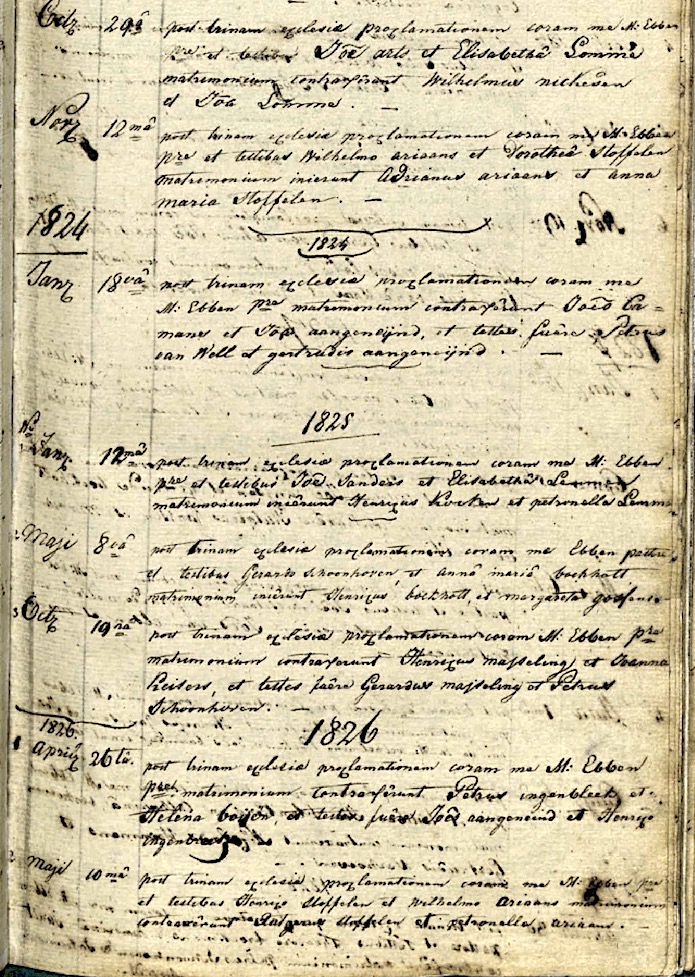 Octz 29â post trinam ecclesiæ proclamationem coram me M: Ebben
pre et testibus Joê arts et Elisabethâ Lomme
matrimonium contraxêrunt Wilhelmus
et Joâ Lomme. —
Novz 12mâ post trinam ecclesiæ proclamationem coram me M: Ebben
pre et testibus Wilhelmo ariaans et Dorotheâ Stoffelen
matrimonium inierunt Adrianus ariaans et anna
maria Stoffelen. —
1824
1824
Janz 18vâ post trinam ecclesiæ proclamationem coram me
M: Ebben pre matrimonium contraxêrunt Joês
mans et Joâ aangeneijnd, et testes fuêre Petrus
van Well et gertrudis aangeneijnd. —
1825
Janz 12mâ post trinam ecclesiæ proclamationem coram me M: Ebben
pre et testibus Joê Sanders et Elisabethâ Lemmen
matrimonium iniêrunt Henricus et petronella
2 Maji 8vâ post trinam ecclesiæ proclamationem coram me Ebben
et testibus Gerardo Schoonhoven, et annâ mariâ bockholt
matrimonium iniêrunt Henricus bockholt, et margareta
3 Octz 19nâ post trinam ecclesiæ proclamationem coram M: Ebben pre
matrimonium contraxerunt Henricus masseling et Joanna
Keisers, et testes fuêre Gerardus masseling et Petrus
Schoonhoven. —
1826
1826
1 Aprilz 26tâ. post trinam ecclesiæ proclamationem coram me M: Ebben
pre matrimonium contraxêrunt Petrus ingenbleek et
Helena et testes fuêre Joês aangeneind et Henricus
2 Maji 10mâ post trinam ecclesiæ proclamationem coram me M: Ebben pre
et testibus Henrico Stoffelen et Wilhelmo Ariaans matrimonium
contraxêrunt Rutgerus Stoffelen et petronella ariaans. —